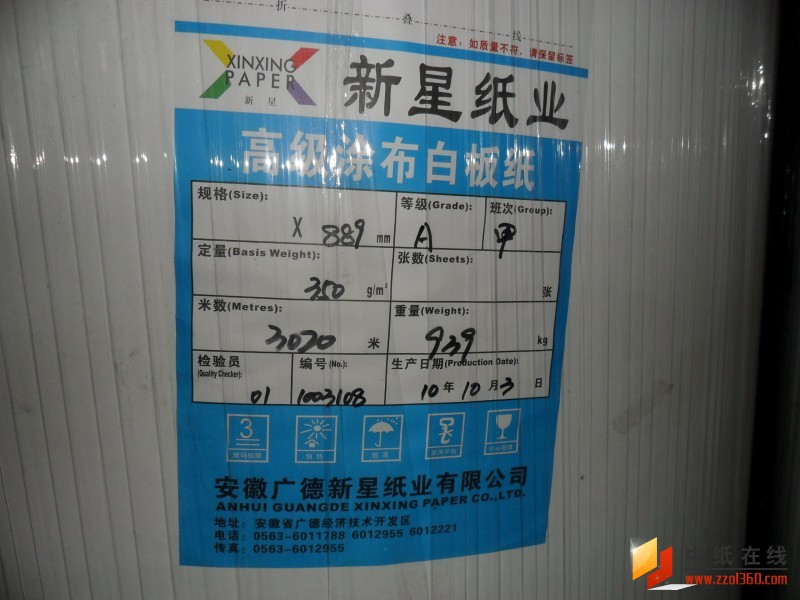 折 叠 线
注意：如质量不符，请保留标签
XINXING
PAPER
新星
新星纸业
高级涂布白板纸
规格(Size):
X 889 mm
等级(Grade):
A
班次(Group):
甲
定量(Basis Weight):
350 g/m²
张数(Sheets):
张
米数(Metres):
3020 米
重量(Weight):
939 kg
检验员
(Quality Checker):
01
编号(No.):
1003108
生产日期(Production Date):
10年10月3日
3
安徽广德新星纸业有限公司
ANHUI GUANGDE XINXING PAPER CO.,LTD.
地址：安徽省广德经济技术开发区
电话：0563-6011788 6012955 6012221
传真：0563-6012955
中纸在线
www.zzol360.com